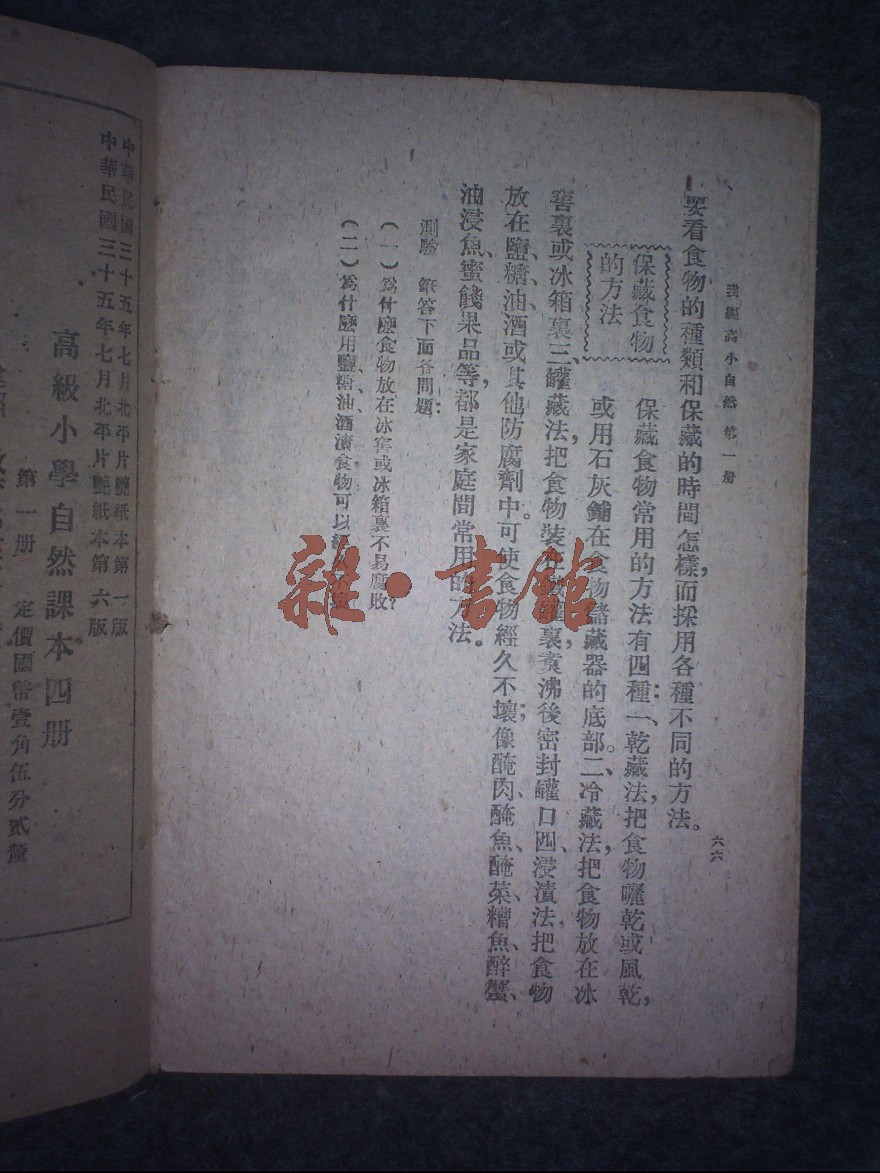 高小自然 第一册
六六
要看食物的種類和保藏的時間怎樣,而採用各種不同的方法。
保藏食物
的方法
保藏食物常用的方法有四種:一、乾藏法,把食物曬乾或風乾,
或用石灰鋪在食物儲藏器的底部。二、冷藏法,把食物放在冰
窖裏或冰箱裏。三、罐藏法,把食物裝在 罐裏,煮沸後密封罐口。四、浸漬法,把食物
放在鹽、糖、油、酒或其他防腐劑中,可使食物經久不壞;像醃肉、醃魚、醃菜、糟魚、醉蟹、
油浸魚、蜜餞果品等,都是家庭間常用的方法。
測驗 解答下面各問題:
(一)爲什麼食物放在冰窖或冰箱裏不易腐敗?
(二)爲什麼用鹽、糖、油、酒漬食物可以
雜·書館
中華民國三十五年七月北平片艷紙本第一版
中華民國三十五年七月北平片艷紙本第六版
高級小學自然課本四册
第一册 定價國幣壹角伍分貳釐